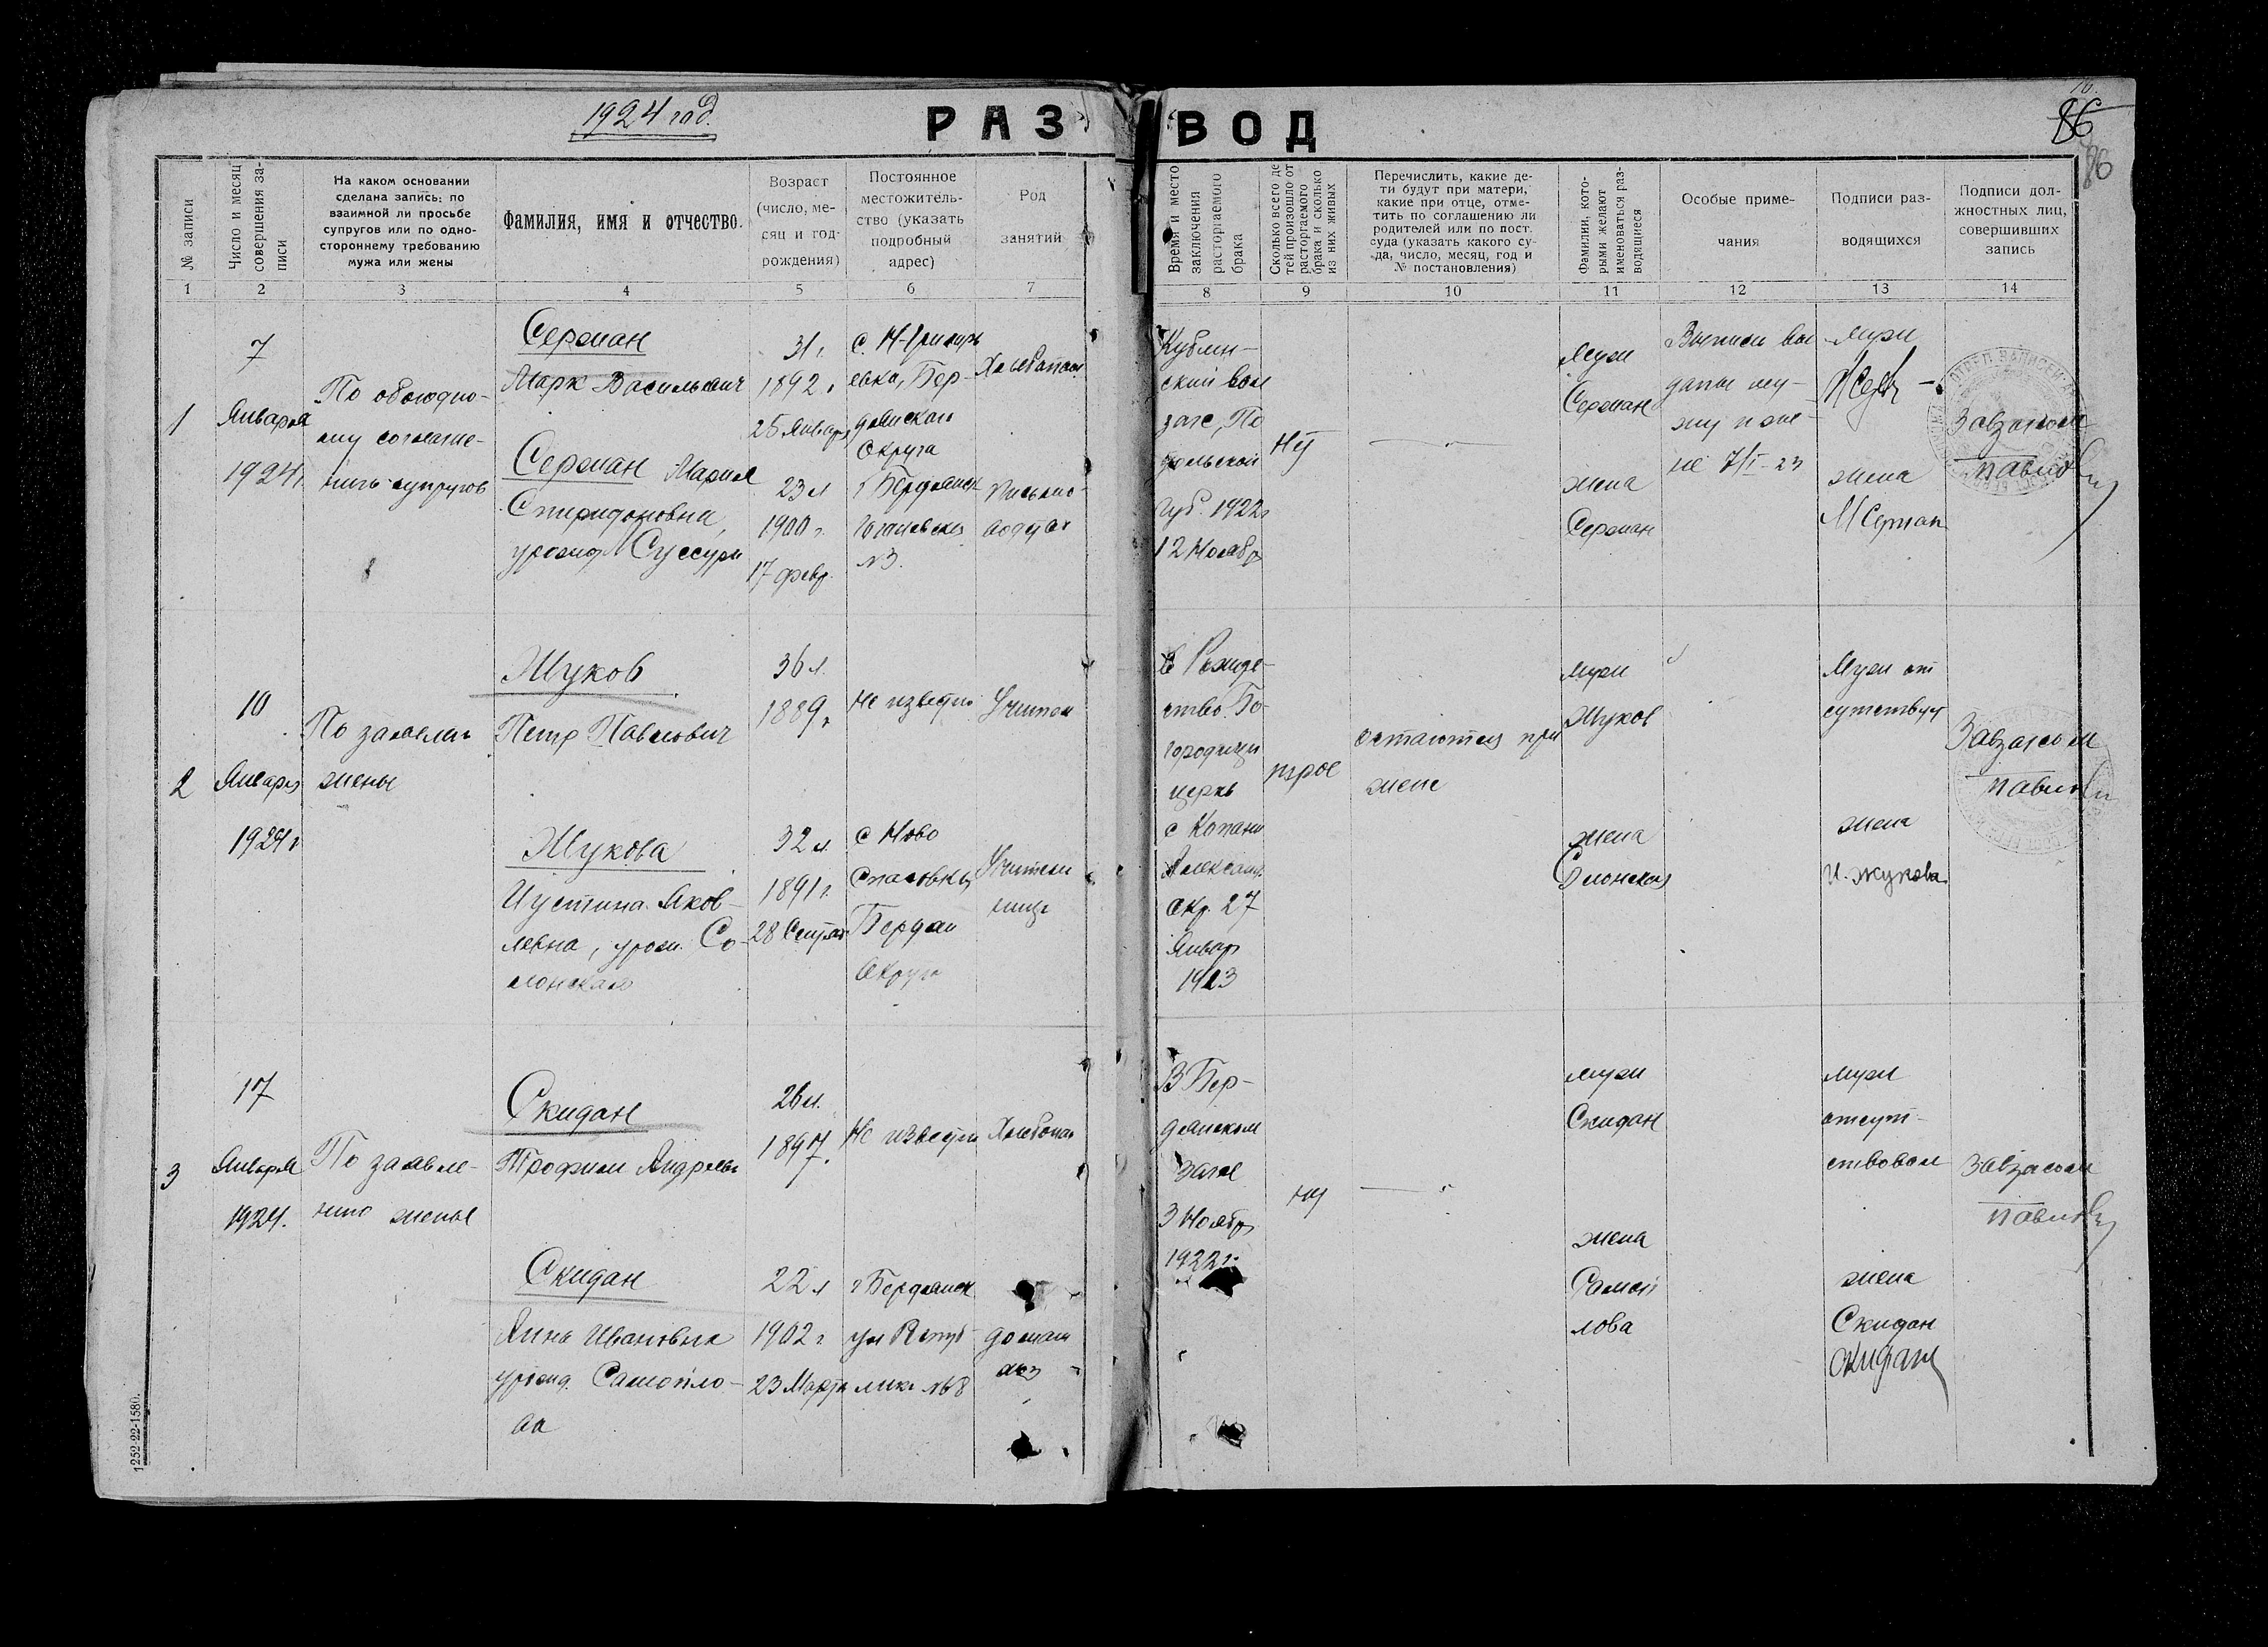 1924 год.
РАЗВОД
86
86
№ записи
Число и месяц совершения записи
На каком основании
сделана запись: по
взаимной ли просьбе
супругов или по одно-
стороннему требованию
мужа или жены
Фамилия, имя и отчество.
Возраст
(число, ме-
сяц и год
рождения)
Постоянное
местожитель-
ство (указать
подробный
адрес)
Род
занятий
Время и место
заключения
расторгаемого
брака
Сколько всего де
тей произошло от
расторгаемого
брака и сколько
из них живых
Перечислить, какие де-
ти будут при матери,
какие при отце, отме-
тить по соглашению ли
родителей или по пост.
суда (указать какого су-
да, число, месяц, год и
№ постановления)
Фамилии, кото-
рыми желают
именоваться раз-
водящиеся
Особые приме-
чания
Подписи раз-
водящихся
Подписи дол-
жностных лиц,
совершивших
запись
1 2 3 4 5 6 7 8 9 10 11 12 13 14
1
7
Января
1924г.
По обоюдно-
му соглаше-
супругов
Серман
Марк Васильевич
31 г.
1892 г.
25 Января
евка, Бер-
дянского
Округа
Серман Мария
Спиридоновна,
23 л
1900 г.
17 февр.
г Бердянск
№3.
Кублич-
ский вол
загс, По
дольской
Губ. 1922г
12 Ноябр
Нет
муж
Серман
жена
Серман
Выписи вы
даны му-
жу и же-
не 7/I-23
муж
жена
М Серман
Завзагсом
2
10
Января
1924г
По заявлен
жены
Жуков
Петр Павлович
36 л.
1889 г.
Не известно
Учител
Жукова
Иустина Яков-
левна, урож. Со-
лонская
32 л.
1891 г.
28 Сентяб
с Ново
Спасовка
Бердян
Округа
Учитель
ница
В Рожде-
ство Бо-
городицы
церкв
с Копани
Александ.
окр. 27
Январ
1913
трое
остаются при
жене
муж
Жуков
жена
Солонская
Муж от
сутствует
жена
И. Жукова
Завзагсом
3
17
Января
1924.
По заявле-
нию жены
Скидан
Трофим Андреев
26 л.
1897 г.
Не известно
Хлебопаш
Скидан
Анна Ивановна
урожд. Самойло-
ва
22 л
1902 г
23 Марта
г Бердянск
ул Респуб
лики №68
домаш
хоз
В Бер-
дянском
загсе
3 Ноябр
1922г.
нет
муж
Скидан
жена
Самой
лова
муж
отсут-
ствовал
жена
Скидан
Скидан
Завзагсом
1252-22-1580.